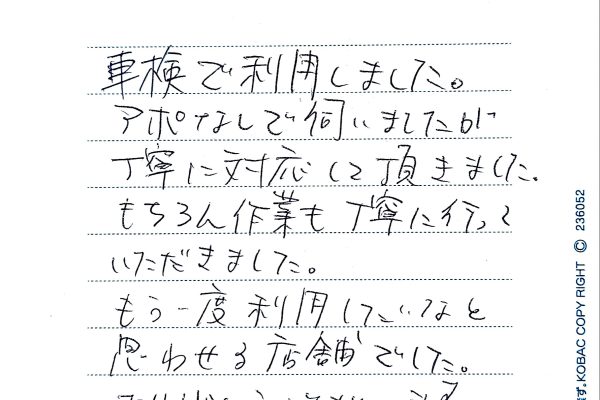 車検で利用しました。
アポなしで伺いましたが
丁寧に対応して頂きました.
もちろん作業も丁寧に行って
いただきました。
もう一度利用したいなと
思わせる店舗でした。
ず. KOBAC COPY RIGHT © 236052